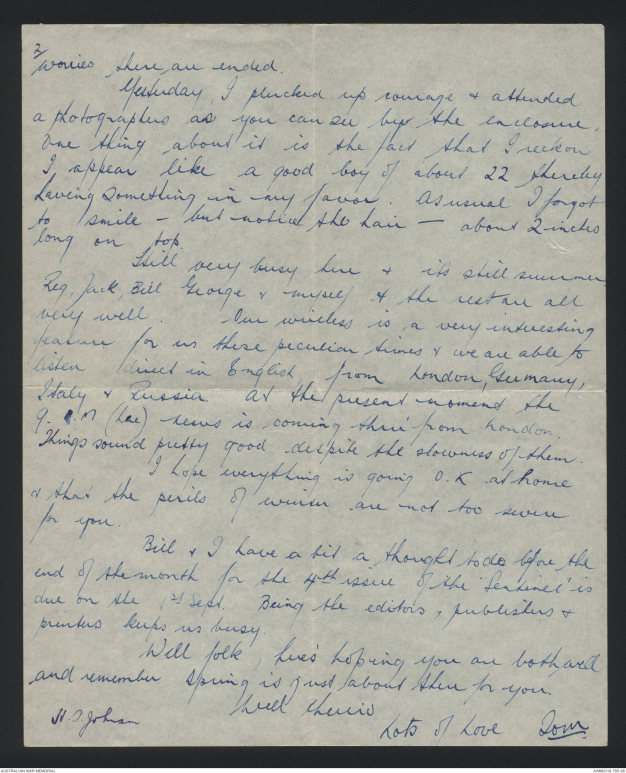 2/
worries there are ended.
Yesterday, I plucked up courage & attended
a photographers as you can see by the enclosure.
One thing about it is the fact that I reckon
I appear like a good boy of about 22 thereby
having something in my favor. As usual I forgot
to smile – but notice the hair – about 2 inches
long on top.
Still very busy here & it's still summer.
Reg, Jack, Bill George & myself & the rest are all
very well. Our wireless is a very interesting
feature for us these peculiar times & we are able to
listen direct in English, from London, Germany,
Italy & Russia. At the present moment the
9. P.M (here) news is coming thru' from London.
Things sound pretty good despite the slowness of them.
I hope everything is going O.K at home
& that the perils of winter are not too severe
for you.
Bill & I have a bit a thought to do before the
end of the month for the 4th issue of the "Sentinel" is
due on the 1st Sept. Being the editors, publishers &
printers keeps us busy.
Well folk, here's hoping you are both well
and remember spring is just about there for you.
Well Cheerio
Lots of Love Tom.
Johnson
AUSTRALIAN WAR MEMORIAL